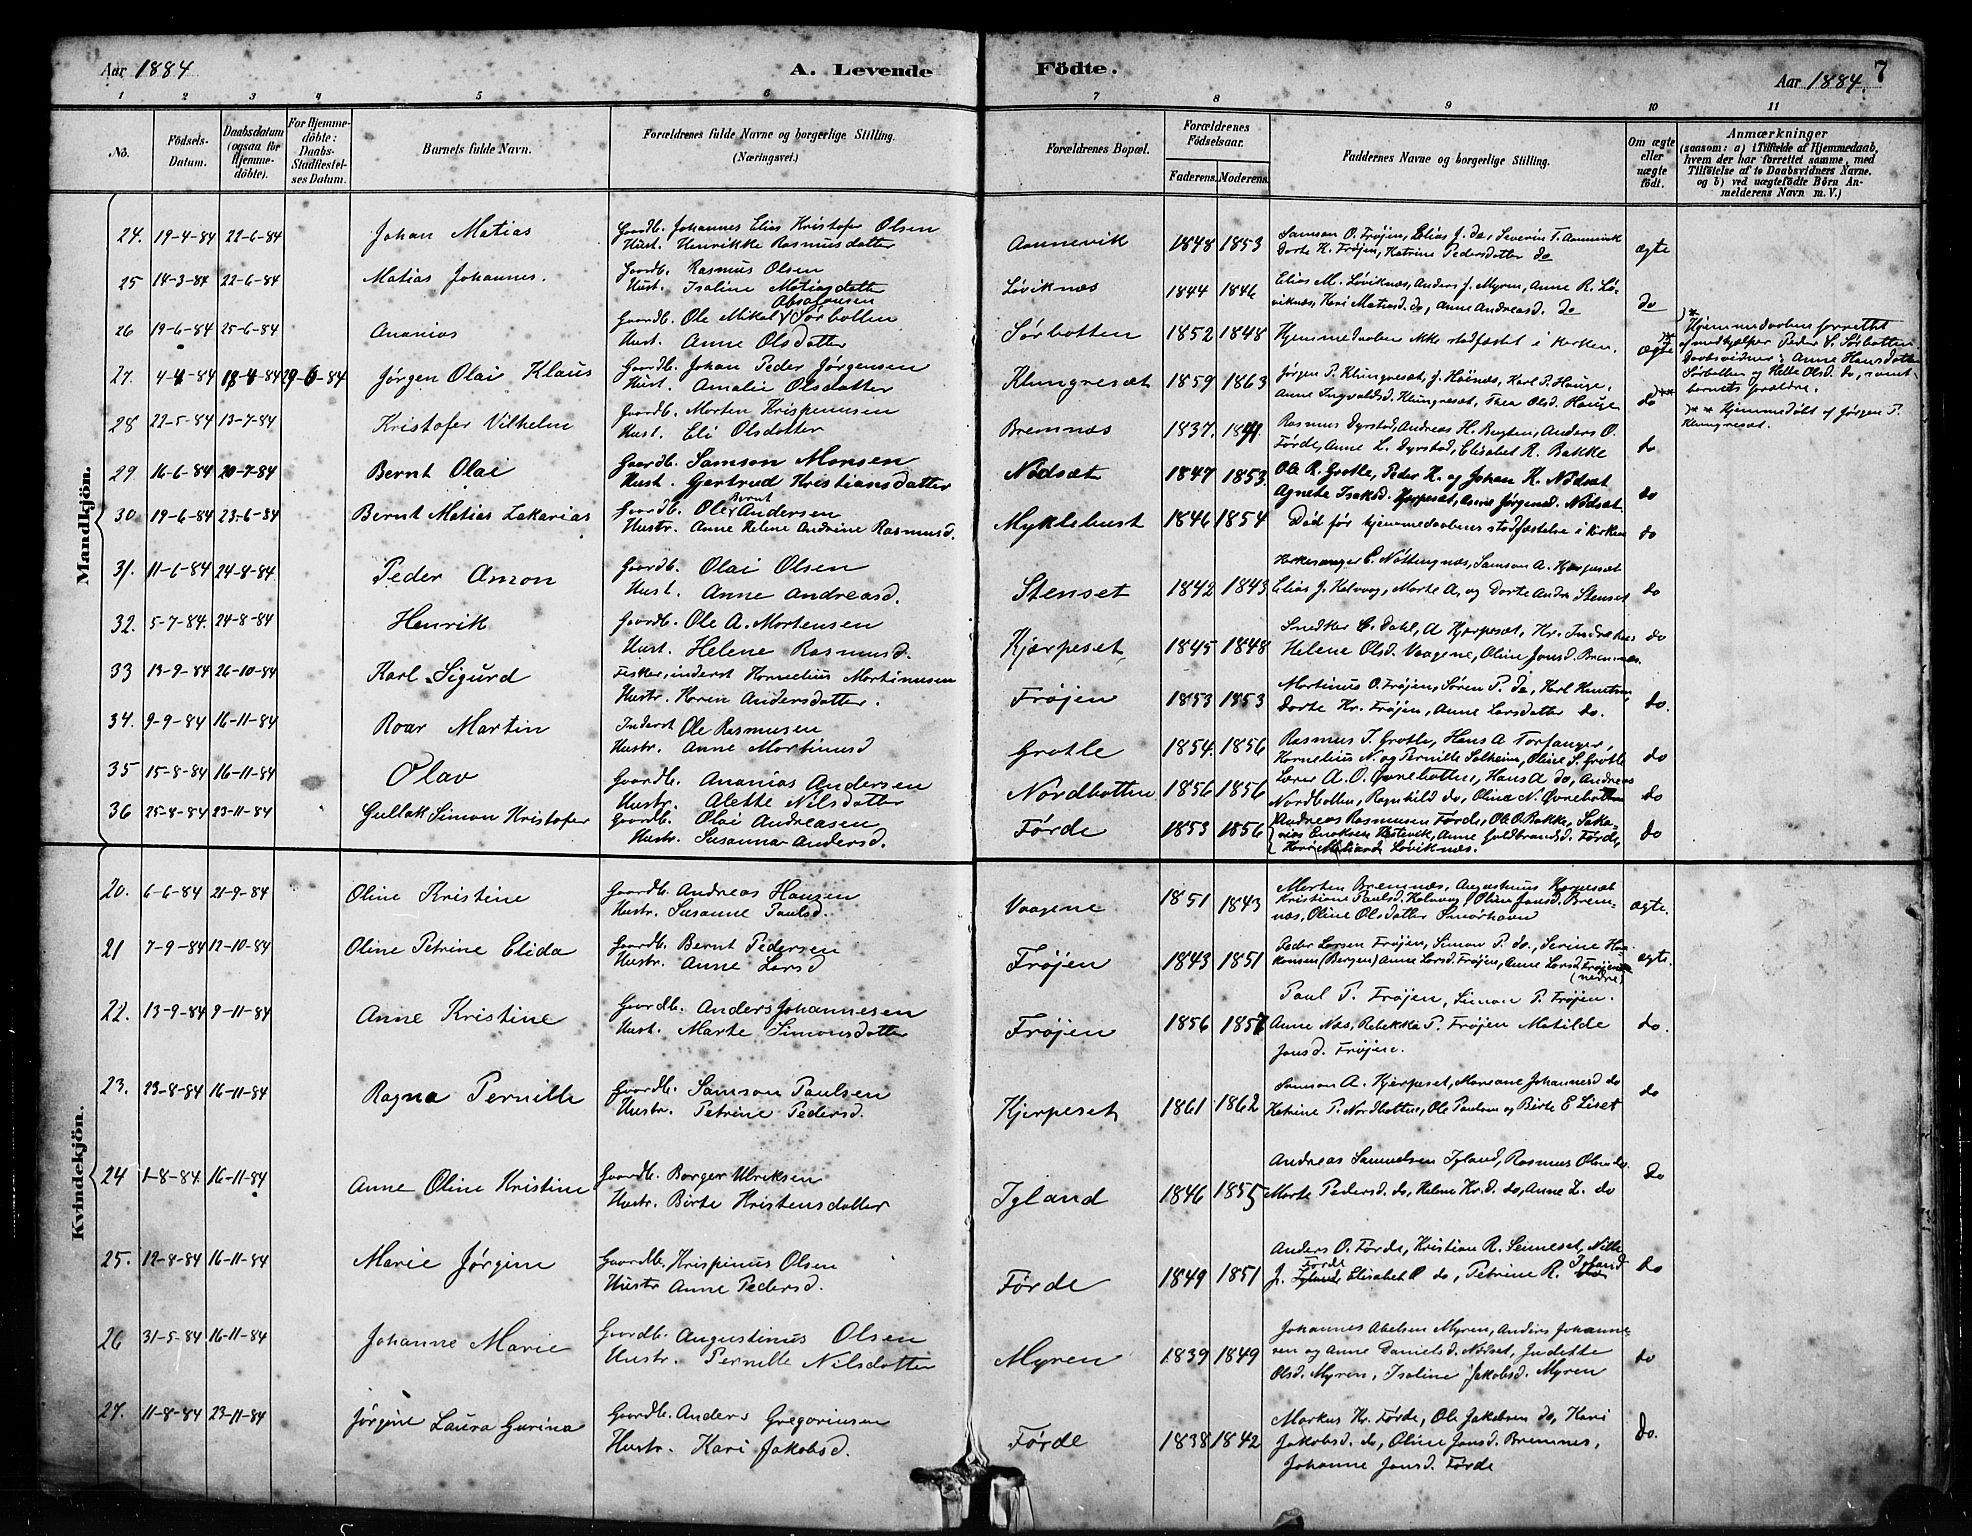 Aar 1884 A. Levende Födte. Aar 1884. 7
1 2 3 4 5 6 7 8 9 10 11
No. Födsels-Datum. Daabsdatum (ogsaa for Hjemme-döbte). For Hjemme-döbte: Daabs-Stadfæstel-ses Datum. Barnets fulde Navn. Forældrenes fulde Navne og borgerlige Stilling. (Næringsvei.) Forældrenes Bopæl. Forældrenes Födselsaar. Faderens. Moderens. Faddernes Navne og borgerlige Stilling. Om ægte eller uægte födt. Anmærkninger (saasom: a) i Tilfælde af Hjemmedaab, hvem der har forrettet samme, med Tilföielse af to Daabsvidners Navne. og b) ved uægtefödte Börn An-melderens Navn m. V.)
Mandkjön.
24. 19-4-84 22-6-84 Johan Matias Gaardb. Johannes Elias Kristofer Olsen
Hust. Henrikke Rasmusdatter Aannevik 1848 1853 Samson O. Frøjen, Elias J. do, Severin T. Aannevik
Dorte K. Frøjen, Katrine Pedersdatter do ægte
25 14-3-84 22-6-84 Matias Johannes. Gaardb. Rasmus Olsen
Hust. Isaline Matiasdatter Løviknæs 1844 1846 Elias M. Løviknæs, Anders J. Myren, Anne R. Lø-
viknæs, Kari Matiasd. do, Anne Andreasd. do do
26 19-6-84 25-6-84 Ananias Gaardb. Ole Mikal Absalonsen Sørbotten
Hust. Anne Olsdatter Sørbotten 1852 1848 Hjemmedaaben ikke stadfæstet i kirken. ægte
Hjemmedaaben forrettet
af medhjælper Peder E. Sørbotten
Daabsvidner: Anne Hansdatter
Sørbotten og Helle Olsd. do, samt
barnets forældre.
27. 4-4-84 18-4-84 29-6-84 Jørgen Olai Klaus Gaardb. Johan Peder Jørgensen
Hust. Amalie Olsdatter Klungresæt 1859 1863 Jørgen P. Klungresæt, J. Høinæs, Karl P. Hauge,
Anne Ingvaldsd. Klungresæt, Thea Olsd. Hauge do
Hjemmedøbt af Jørgen P.
Klungresæt.
28 22-5-84 13-7-84 Kristofer Vilhelm Gaardb. Morten Krispinusen
Hust. Eli Olsdatter Bremnæs 1837. 1841 Rasmus Dyrstad, Andreas H. Rugten, Anders O.
Førde, Anne L. Dyrstad, Elisabet R. Bakke do
29 16-6-84 20-7-84 Bernt Olai Gaardb. Samson Monsen
Hust. Gjertrud Kristiansdatter Nødsæt 1847 1853. Ole R. Grotle, Peder K. og Johan K. Nødsæt
Agnete Isaksd. Kjerpesæt, Anne Jørgensd. Nødsæt. do
30 19-6-84 23-6-84 Bernt Matias Zakarias Gaardb. Ole Bernt Andersen
Hustr. Anne Helene Andrine Rasmusd. Myklebust 1846 1854 Død før hjemmedaabens stadfæstelse i kirken do
31. 11-6-84 24-8-84 Peder Amon Gaardb. Olai Olsen
Hust. Anne Andreasd. Stenset 1842 1843 Kirkesanger E. Nøttingnæs, Samson A. Kjerpesæt
Elias J. Kalvaag, Marte A. og Dorte Andr. Stenset do
32. 5-7-84. 24-8-84 Henrik Gaardb. Ole A. Mortensen
Hust. Helene Rasmusd. Kjærpeset, 1845 1848 Snedker E. Dahl, A Kjerpesæt, Kr.
Helene Olsd. Vaagene, Oline Jonsd. Bremnæs. do
33 13-9-84 26-10-84 Karl Sigurd Fisker, inderst Kornelius Mortinusen
Hustr. Karen Andersdatter. Frøjen 1853 1853 Martinus O. Frøjen, Søren P. do, Karl Knutsen,
Dorte Kr. Frøjen, Anne Larsdatter do. do.
34. 9-9-84 16-11-84 Roar Martin Inderst Ole Rasmusen
Hustr. Anne Mortinusd Grotle 1854. 1856 Rasmus T. Grotle, Hans A Torfanger,
Kornelius N. og Pernille Solheim, Oline S. Grotle do
35 15-8-84 16-11-84 Olav Gaardb. Ananias Andersen
Hustr. Alette Nilsdatter Nordbotten 1856 1856 Lærer A. O. Øvrebotten, Hans A do, Andreas
Nordbotten, Ragnhild do, Oline N. Øvrebotten do
36 25-8-84 23-11-84 Gullak Simon Kristofer Gaardb. Olai Andreasen
Hustr. Susanna Andersd. Førde 1853 1856 Andreas Rasmusen Førde, Ole O. Bakke, Saka-
rias Enoksen, Anne Guldbrandsd. Førde,
Kari Matiasd Løviknæs. do
Kvindekjön.
20. 6-6-84 21-9-84 Oline Kristine Gaardb. Andreas Hansen
Hustr. Susanne Paulsd. Vaagene 1851 1843 Morten Bremnæs, Augustinus Kjerpesæt
Kristiane Paulsd. Kalvaag, Oline Jonsd. Brem-
næs, Oline Olsdatter Smørhavn ægte.
21 7-9-84 12-10-84 Oline Petrine Elida Gaardb. Bernt Pedersen
Hustr. Anne Larsd Frøjen 1843 1851 Peder Larsen Frøjen, Simon P. do, Serine Haa-
konsen (Bergen) Anne Larsd. Frøjen, Anne Larsd. Frøjen
(nedre) ægte.
22. 13-9-84 9-11-84 Anne Kristine Gaardb. Anders Johannesen
Hust. Marte Simonsdatter Frøjen 1856 1857 Paul P. Frøjen, Simon P. Frøjen.
Anne Næs, Rebekka P. Frøjen Matilde
Jonsd. Frøjen. do.
23. 23-8-84 16-11-84 Ragna Pernille Gaardb. Samson Paulsen
Hustr. Petrine Pedersd. Kjerpeset 1861 1862 Samson A. Kjerpeset, Mareane Johannesd do
Katrine P. Nordbotten, Ole Paulsen og Birte E Liset do
24 1-8-84. 16-11-84 Anne Oline Kristine Gaardb. Borger Ulriksen
Hustr. Birte Kristensdatter Igland 1846 1855 Andreas Samuelsen Igland, Rasmus Olsen do.
Marte Pedersd. do, Helene Kr.d. do, Anne L. do do
25. 12-8-84 16-11-84 Marie Jørgine Gaardb. Krispinus Olsen
Hustr Anne Pedersd. Førde 1849 1851 Anders O. Førde, Kristian R. Seineset, Nille
J. Førde Elisabet O do, Petrine R. Igland do
26 31-5-84 16-11-84 Johanne Marie Gaardb. Augustinus Olsen
Hustr. Pernille Nilsdatter Myren 1839 1849 Johannes Abelsen Myren, Anders Johanne-
sen og Anne Danielsd. Nødset, Judette
Olsd. Myren, Isaline Jakobsd. Myren do
27. 11-8-84 23-11-84 Jørgine Laura Gurina Gaardb. Anders Gregoriusen
Hustr. Kari Jakobsd. Førde 1838 1842 Markus Kr. Førde, Ole Jakobsen do, Kari
Jakobsd. do, Oline Jonsd. Bremnes,
Johanne Jonsd. Førde do.